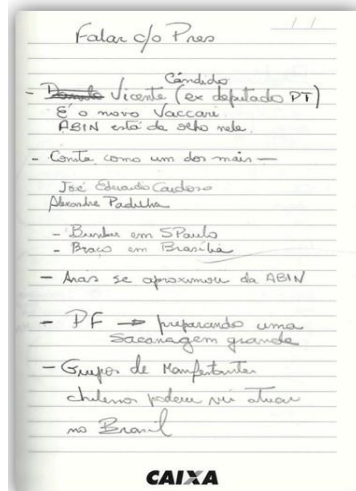 Falar c/o Pres
Cândido
- Vicente (ex deputado PT)
É o novo Vaccari.
ABIN está de olho nele.
- Conta como um dos mais —
José Eduardo Cardoso
Alexandre Padilha
- Bunker em SPaulo
- Braço em Brasília
- Aras se aproximou da ABIN
- PF → preparando uma
sacanagem grande
- Grupos de Manifestantes
chilenos podem vir atuar
no Brasil
CAIXA